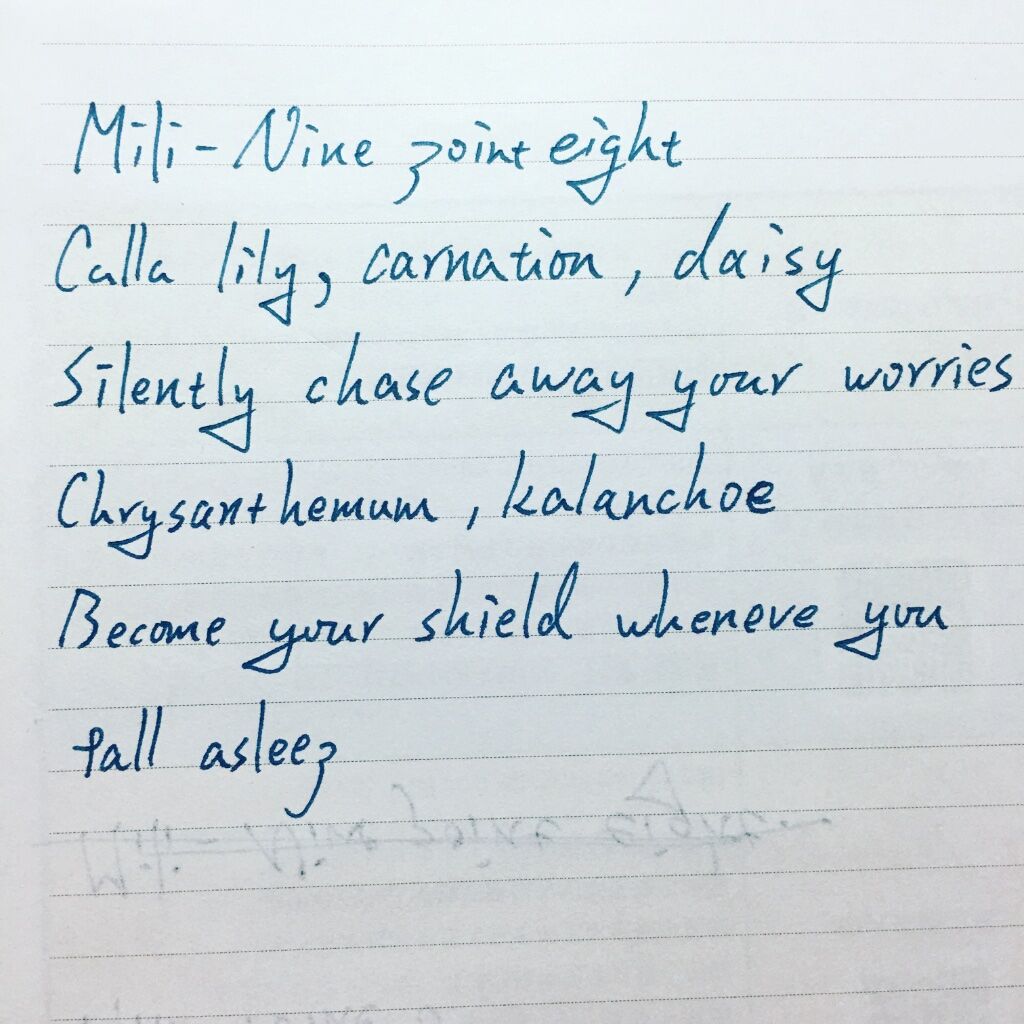 Mili - Nine point eight
Calla lily, carnation, daisy
Silently chase away your worries
Chrysanthemum, kalanchoe
Become your shield wheneve you
fall asleep